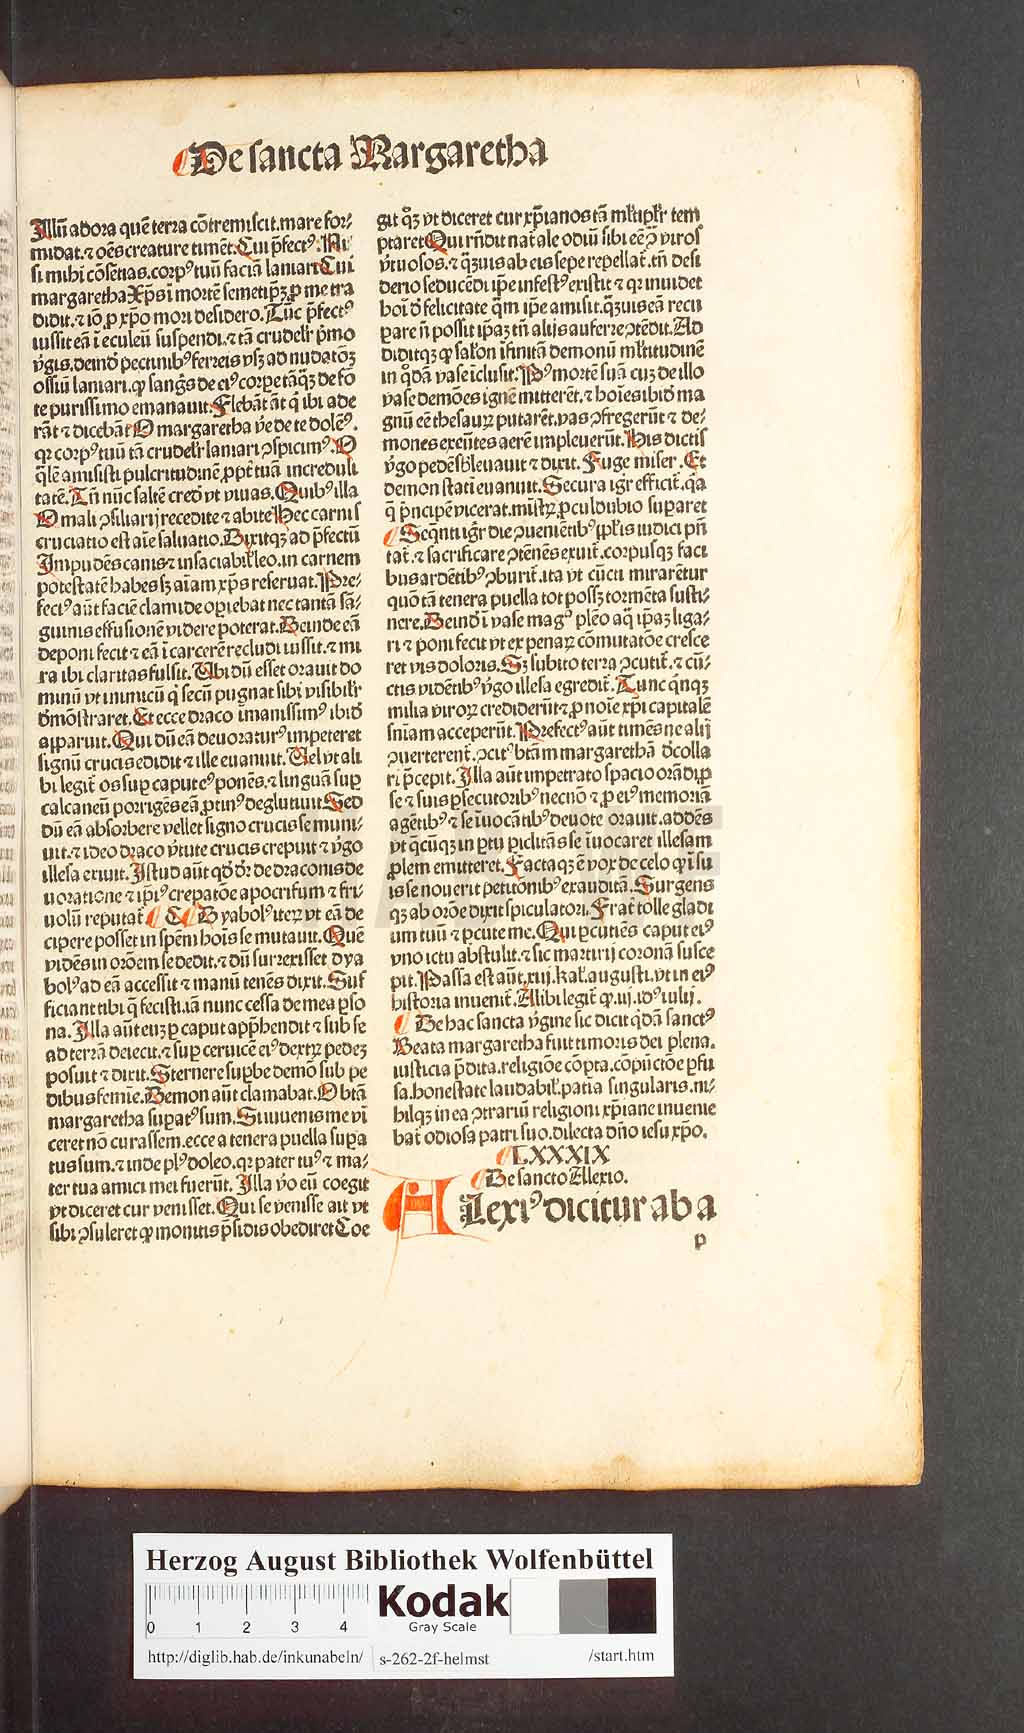 De sancta Margaretha
Illū adora quē terra cōtremiscit. mare for⸗
midat. ⁊ oēs creature timēt. Cui p̄fectꝰ. Ni
si mihi cōsentias. corpꝰ tuū faciā laniari Cui
margaretha Xp̄s ī mortē semetip̄ꝫ ꝓ me tra
didit. ⁊ iō ꝓ xp̄o mori desidero. Tūc p̄fectꝰ
iussit eā ī eculeū suspendi. ⁊ tā crudelr̄ p̄mo
v̄gis. deind̄ pectinibꝰ ferreis vsꝫ ad nudatōꝫ
ossiū laniari. ꝙ sanḡs de eiꝰ corpe tāq̄ꝫ de fō
te purissimo emanauit. Flebāt āt q̄ ibi ade
rāt ⁊ dicebāt O margaretha v̄e de te dolēꝰ.
qꝛ corpꝰ tuū tā crudelr̄ laniari ꝯspicimꝰ. O
q̄lē amisisti pulcritudinē ꝓpt̄ tuā increduli
tatē. Tn̄ nūc saltē cred̄ vt viuas. Quibꝰ illa
O mali ꝯsiliarij recedite ⁊ abite Hec carnis
cruciatio est aīe saluatio. Dixitqꝫ ad p̄fectū
Impudēs canis ⁊ insaciabil̄ leo. in carnem
potestatē habes sꝫ aīam xp̄s reseruat. Pre⸗
fectꝰ aūt faciē clamide opiebat nec tantā sā⸗
guinis effusionē videre poterat. Deinde eā
deponi fecit ⁊ eā ī carcerē recludi iussit. ⁊ mi
ra ibi claritas fulsit. Ubi dū esset orauit do
minū vt inimicū q̄ secū pugnat sibi visibilr̄
d̄mōstraret. Et ecce draco īmanissimꝰ ibid̄
apparuit. Qui dū eā deuoraturꝰ impeteret
signū crucis edidit ⁊ ille euanuit. Uel vt ali
bi legit̄ os sup caput eꝰ ponēs. ⁊ linguā sup
calcaneū porrigēs eā ꝓtinꝰ deglutiuit Sed
dū eā absorbere vellet signo crucis se muni⸗
uit. ⁊ ideo draco v̄tute crucis crepuit ⁊ v̄go
illesa exiuit. Istud aūt qd̄ dr̄ de draconis de
uoratione ⁊ ip̄iꝰ crepatōe apocrifum ⁊ fri⸗
uolū reputat̄ Dyabolꝰ iteꝝ vt eā de
cipere posset in spēm hoīs se mutauit. Quē
vidēs in orōem se dedit. ⁊ dū surrexisset dya
bolꝰ ad eā accessit ⁊ manū tenēs dixit. Suf
ficiant tibi q̄ fecisti. iā nunc cessa de mea ꝑso
na. Illa aūt euꝫ ꝑ caput app̄hendit ⁊ sub se
ad terrā deiecit. ⁊ sup ceruicē eiꝰ dextꝝ pedeꝫ
posuit ⁊ dixit. Sternere supbe demō sub pe
dibus femīe. Demon aūt clamabat. O btā
margaretha supatꝰ sum. Si iuuenis me vī
ceret nō curassem. ecce a tenera puella supa
tus sum. ⁊ inde plꝰ doleo. qꝛ pater tuꝰ ⁊ ma⸗
ter tua amici mei fuerūt. Illa v̄o eū coegit
vt diceret cur venisset. Qui se venisse ait vt
sibi ꝯsuleret ꝙ monitis p̄sidis obediret Coe
git q̄ꝫ vt diceret cur xp̄ianos tā ml̄tiplr̄ tem
ptaret. Qui rn̄dit nat̄ale odiū sibi eē ꝯ̄ viros
v̄tuosos. ⁊ q̄ꝫuis ab eis sepe repellat̄. tn̄ desi
derio seducēdi ip̄e infestꝰ existit ⁊ qꝛ inuidet
hoī d̄ felicitate q̄m ip̄e amisit. q̄ꝫuis eā recu
pare n̄ possit ip̄aꝫ tn̄ alijs auferre ꝯtēdit. Ad
diditqꝫ ꝙ salōn īfinitā demonū ml̄titudinē
in q̄dā vase īclusit. Pꝰ mortē suā cuꝫ de illo
vase demōes ignē mitterēt. ⁊ hoīes ibid̄ ma
gnū eē thesauꝝ putarēt. vas ꝯfregerūt ⁊ de⸗
mones exeūtes aerē impleuerūt. His dictis
v̄go pedē sb̄leuauit ⁊ dixit. Fuge miser. Et
demon statī euanuit. Secura igr̄ efficit̄. qa
q̄ p̄ncipē vicerat. mīstꝝ ꝓculdubio superaret
Seq̄nti igr̄ die ꝯuenietibꝰ pp̄lis iudici p̄n
tat̄. ⁊ sacrificare ꝯtēnēs exuit̄. corpusqꝫ faci
bus ardētibꝰ ꝯburit̄. ita vt cūcti mirarētur
quō tā tenera puella tot possꝫ tormēta susti⸗
nere. Deind̄ ī vase magꝰ plēo aq̄ ip̄aꝫ liga⸗
ri ⁊ poni fecit vt ex penaꝝ cōmutatōe cresce
ret vis doloris. Sꝫ subito terra ꝯcutit̄. ⁊ cū⸗
ctis vidētibꝰ v̄go illesa egredit̄. Tunc q̄nqꝫ
milia viroꝝ crediderūt ⁊ ꝓ noīe xp̄i capitalē
sn̄iam acceperūt. Prefectꝰ aūt timēs ne alij
ꝯuerterent̄. ꝯcitꝰ btām margarethā d̄colla
ri p̄cepit. Illa aūt impetrato spacio orādi. ꝓ
se ⁊ suis ꝑsecutoribꝰ necnō ⁊ ꝓ eiꝰ memoriā
agētibꝰ ⁊ se īuocātibꝰ deuote orauit. addēs
vt q̄cūqꝫ in ꝑtu ꝑiclitās se īuocaret illesam
ꝓlem emitteret. Factaqꝫ ē vox de celo ꝙ ī su
is se nouerit petitōnibꝰ exauditā. Surgens
qꝫ ab orōe dixit spiculatori. Frat̄ tolle gladi
um tuū ⁊ ꝑcute me. Qui ꝑcutiēs caput eiꝰ
vno ictu abstulit. ⁊ sic martirij coronā susce
pit. Passa est aūt. xiij. kal̄. augusti. vt in eiꝰ
historia inuenit̄. Alibi legit̄ ꝙ. iij. idꝰ iulij.
De hac sancta v̄gine sic dicit q̄dā sanctꝰ
Beata margaretha fuit timoris dei plena.
iusticia p̄dita. religiōe cōpta. cōpūctiōe ꝑfu
sa. honestate laudabil̄. patīa singularis. ni⸗
hilqꝫ in ea ꝯtrariū religioni xp̄iane inuenie
bat̄ odiosa patri suo. dilecta dn̄o iesu xp̄o.
LXXXIX
De sancto Allexio.
ALexiꝰ dicitur ab a
p
Herzog August Bibliothek Wolfenbüttel
0 1 2 3 4
Kodak
Gray Scale
http://diglib.hab.de/inkunabeln/ s-262-2f-helmst /start.htm